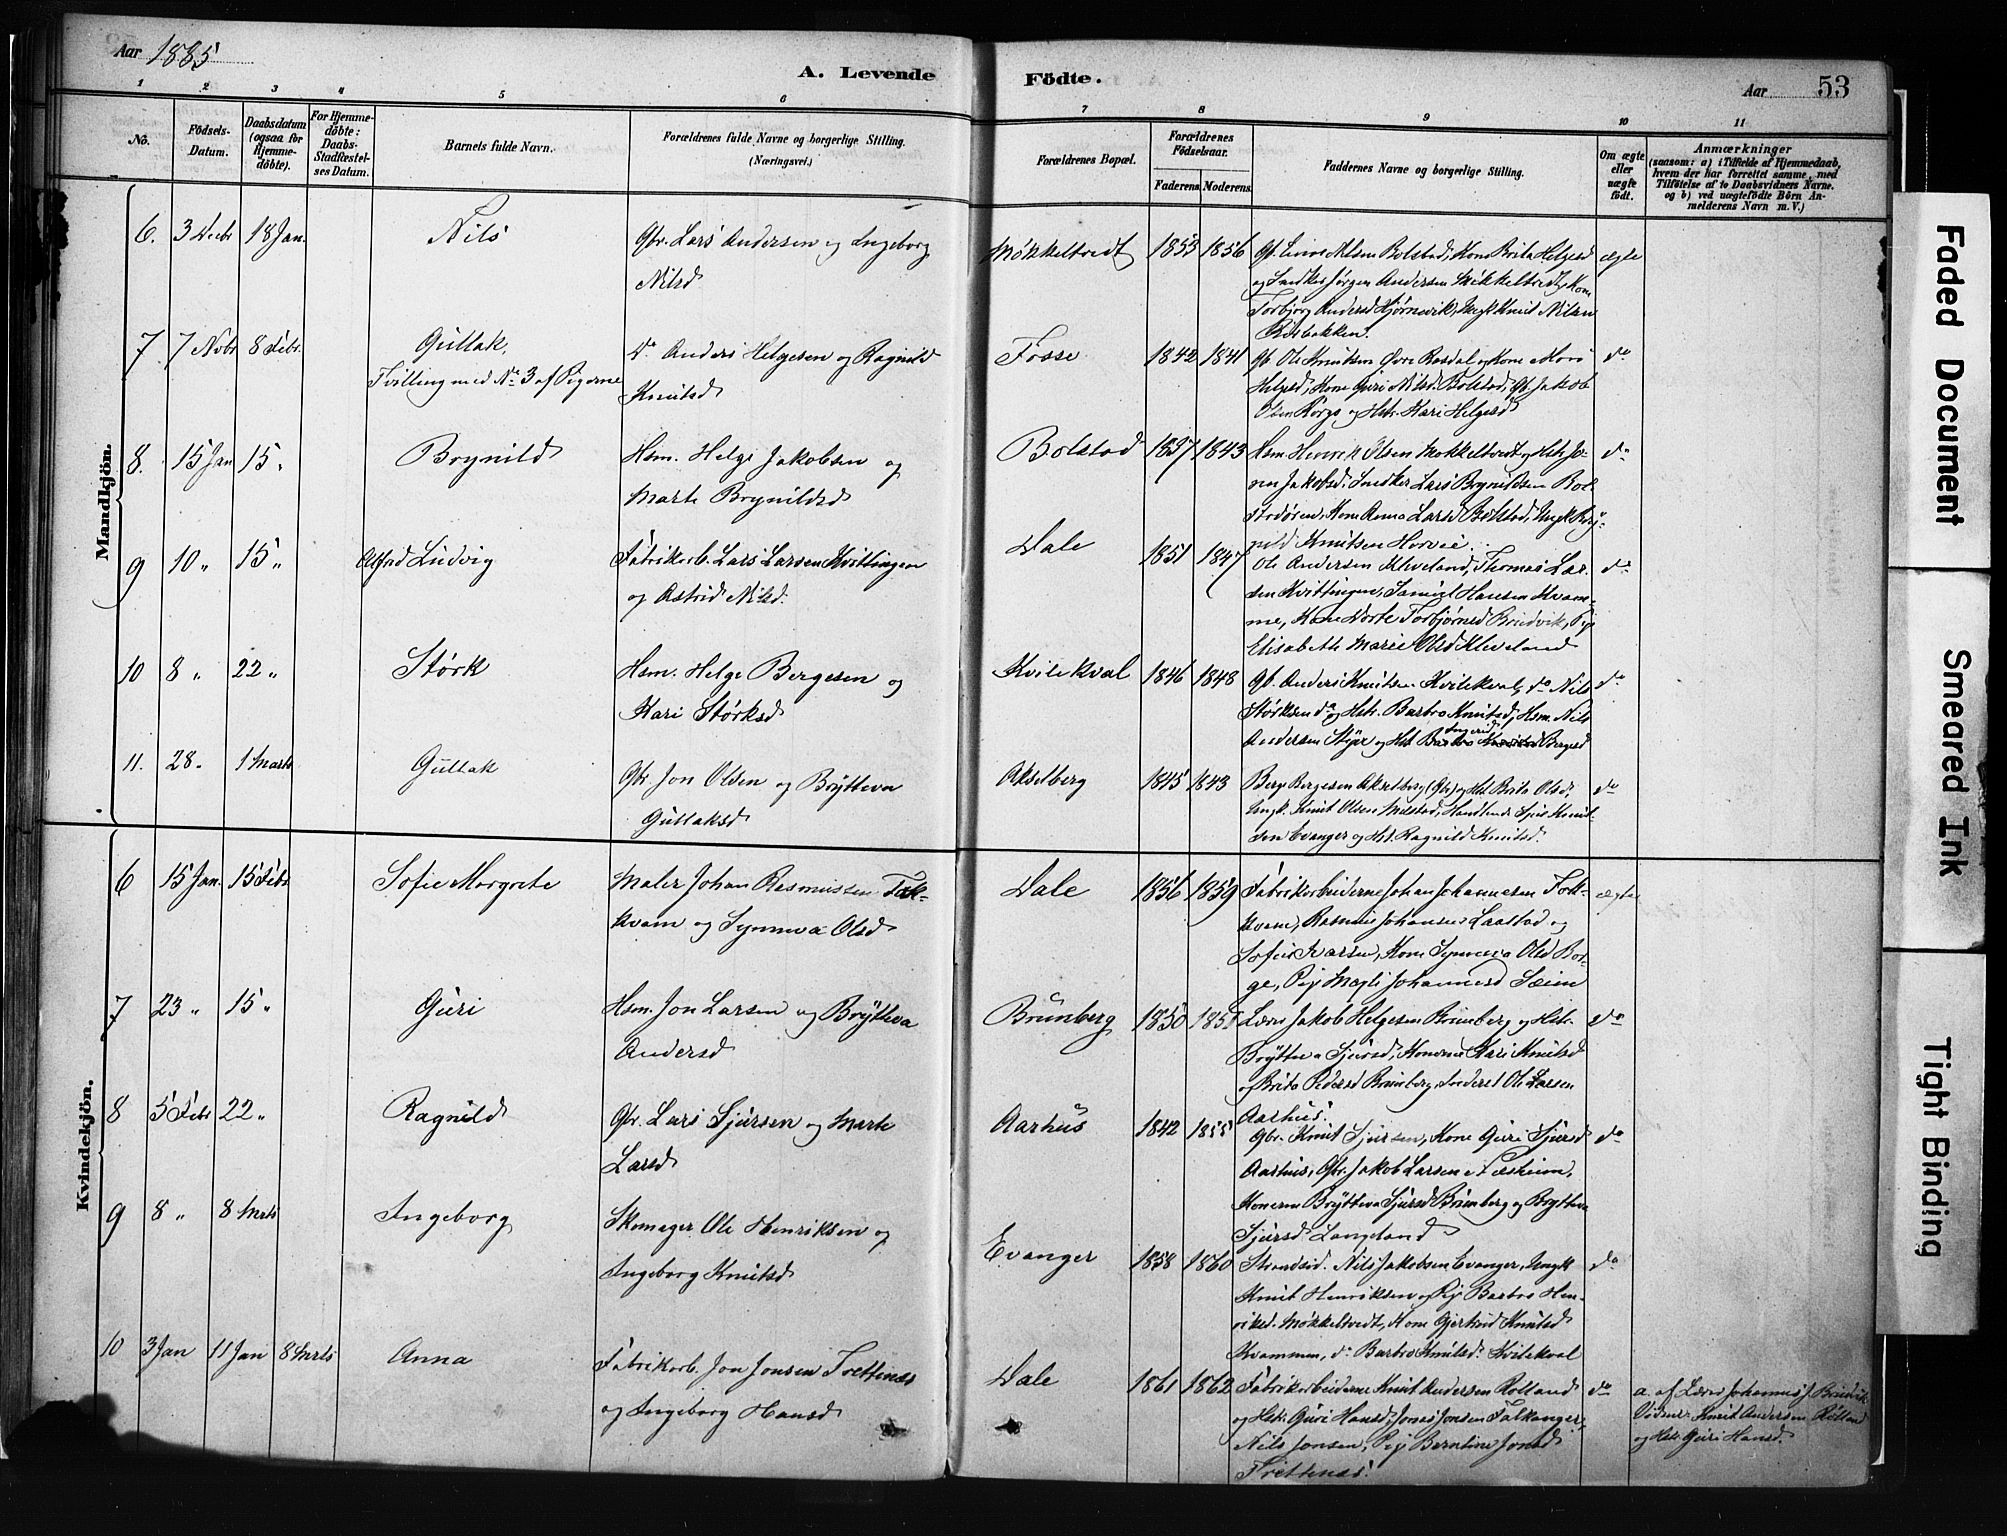 Aar 1885
A. Levende Födte.
Aar 53
1 2 3 4 5 6 7 8 9 10 11
No.
Födsels-Datum.
Daabsdatum (ogsaa for Hjemmedöbte).
For Hjemmedöbte: Daabs-Stadfæstelses Datum.
Barnets fulde Navn.
Forældrenes fulde Navne og borgerlige Stilling. (Næringsvei.)
Forældrenes Bopæl.
Forældrenes Födselsaar.
Faderens. Moderens.
Faddernes Navne og borgerlige Stilling.
Om ægte eller uægte födt.
Anmærkninger (saasom: a) i Tilfælde af Hjemmedaab, hvem der har forrettet samme, med Tilföielse af to Daabsvidners Navne, og b) ved uægtefödte Börn Anmelderens Navn m.V.)
Mandkjön.
6. 3 Decbr 18 Jan. Nils Gbr. Lars Andersen og Ingeborg
Nilsd Møkkeltvedt 1853 1856
Bolstad, Kone Brita Helgesd ægte
og Snedker Jørgen Andersen Møkkeltvedt, Kone
Torbjørg Andersd Hjørnevik, Ungk Knut Nilsen
7 7 Novbr 8 Febr. Gullak,
Tvilling med No 3 af Pigerne
Do Anders Helgesen og Ragnild
Knutsd Fosse 1842 1841
Gb. Ole Knutsen Øvre Rasdal og Kone Mari do
Helgesd, Kone Guri Nilsd Bolstad, Gb. Jakob
Olsen Horge og Hstr. Kari Helgesd
8. 15 Jan 15 " Brynild Hsm. Helge Jakobsen og
Marte Brynildsd Bolstad 1837 1843
Hsm. Henrik Olsen Møkkeltvedt og Hstr Jo-
Jakobsd. Snedker Lars Brynildsen Bol-
stadøren, Kone Anna Larsd Bolstad, Ungk Bry-
nild Knutsen Horvei do
9 10 " 15 " Alfred Ludvig Fabrikarb. Lars Larsen Kvittingen
og Astrid Nilsd. Dale 1851 1847
Ole Andersen Kleveland, Thomas Lar- do
sen Kvittingen, Samuel Hansen Kvam-
me, Kone Dorte Torbjørnsd Bruvik, Pig
Elisabeth Marie Olsd Kleveland
10 8 " 22 " Størk Hsm. Helge Bergesen og
Kari Størksd Kvilekval 1846 1848
Gb. Anders Knutsen Kvilekval, do Nils do
Størksen do og Hstr. Barbro Knutsd, Hsm. Nils
Andersen og Hst Ingerid Bergesd
11. 28 " 1 Marts Gullak Gbr Jon Olsen og Brytteva
Gullaksd Akselberg 1845 1843
Berge Bergesen Akselberg (Gbr) og Hst Brita Olsd, do
Ungk. Knut Olsen Mestad, Handlende Sjur Knut-
sen Evanger og Hst. Ragnild Knutsd.
Kvindekjön.
6 15 Jan. 15 Febr Sofie Margrete Maler Johan Rasmussen Fok-
kvam og Synneva Olsd Dale 1856 1859
Fabrikarbeiderne Johan Johannesen Fok- ægte
kvam, Rasmus Johansen Laastad og
Sofie Ivarsen, Kone Synneva Olsd Bor-
ge, Pig Magli Johannesd Sæim
7 23 " 15 " Guri Hsm. Jon Larsen og Brytteva
Andersd Brunberg 1850
Lærer Jakob Helgesen Brunberg og Hstr. do
Brytteva Sjursd, Konerne Kari Knutsd
og Brita Pedersd Brunberg, Inderst Ole Larsen
Aarhus.
8 5 Febr 22 " Ragnild Gbr. Lars Sjursen og Marte
Larsd Aarhus 1842 1855
Gbr. Knut Sjursen, Kone Guri Sjursd do
Aarhus, Gbr. Jakob Larsen
Konerne Brytteva Sjursd Brunberg og Brytteva
Sjursd Langeland
9 8 " 8 Mrts Ingeborg Skomager Ole Henriksen og
Ingeborg Knutsd Evanger 1858 1860
Strandsid. Nils Jakobsen Evanger, Ungk do
Knut Henriksen og Pig Barbro Hen-
riksd. Møkkeltvedt, Kone Gjertrud Knutsd
Kvammen, do Barbro Knutsd. Kvilekval
10 3 Jan 11 Jan 8 Mrts Anna Fabrikarb. Jon Jonsen Trettenæs
og Ingeborg Hansd Dale 1861 1862
Fabrikarbeiderne Knut Andersen Rolland do
og Hstr. Guri Hansd, Jonas Jonsen Falkanger
Nils Jonsen, Pig Berntine Jonsd
Trettenæs.
a. af Lærer Johannes J. Bruvik
Vidner: Knut Andersen Rolland
og Hstr Guri Hansd.
Faded Document
Smeared Ink
Tight Binding